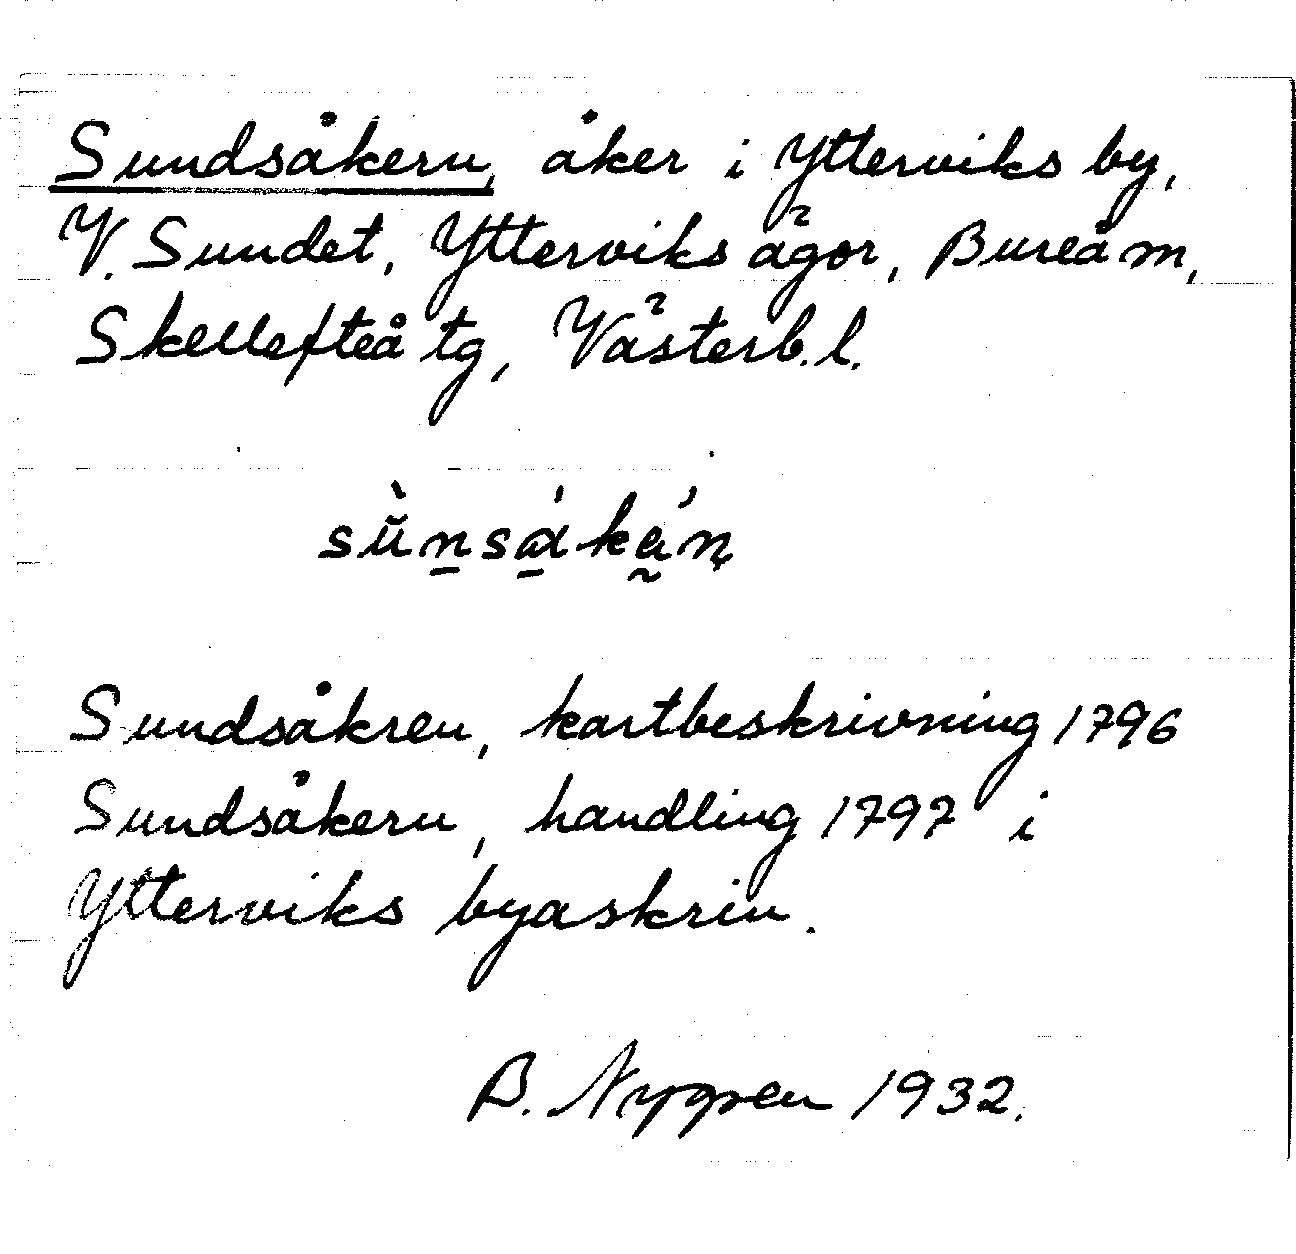 Sundsåkern, åker i Ytterviks by,
V. Sundet, Ytterviks ägor, Bureå m,
Skellefteå tg, Västerb. l.
Sundsåkren, kartbeskrivning 1796
Sundsåkern, handling 1797 i
Ytterviks byaskrin.
B. Nygren 1932.